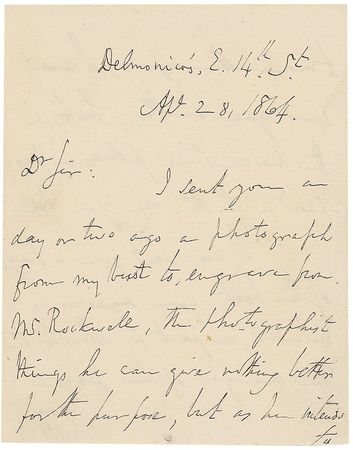 Delmonico's, E. 14th St.
Ap. 28, 1864.
Dr Sir:
I sent you a
day or two ago a photograph
from my bust to engrave from.
Mr. Rockwell, the photographist
things he can give nothing better
for the purpose, but as he intends
to